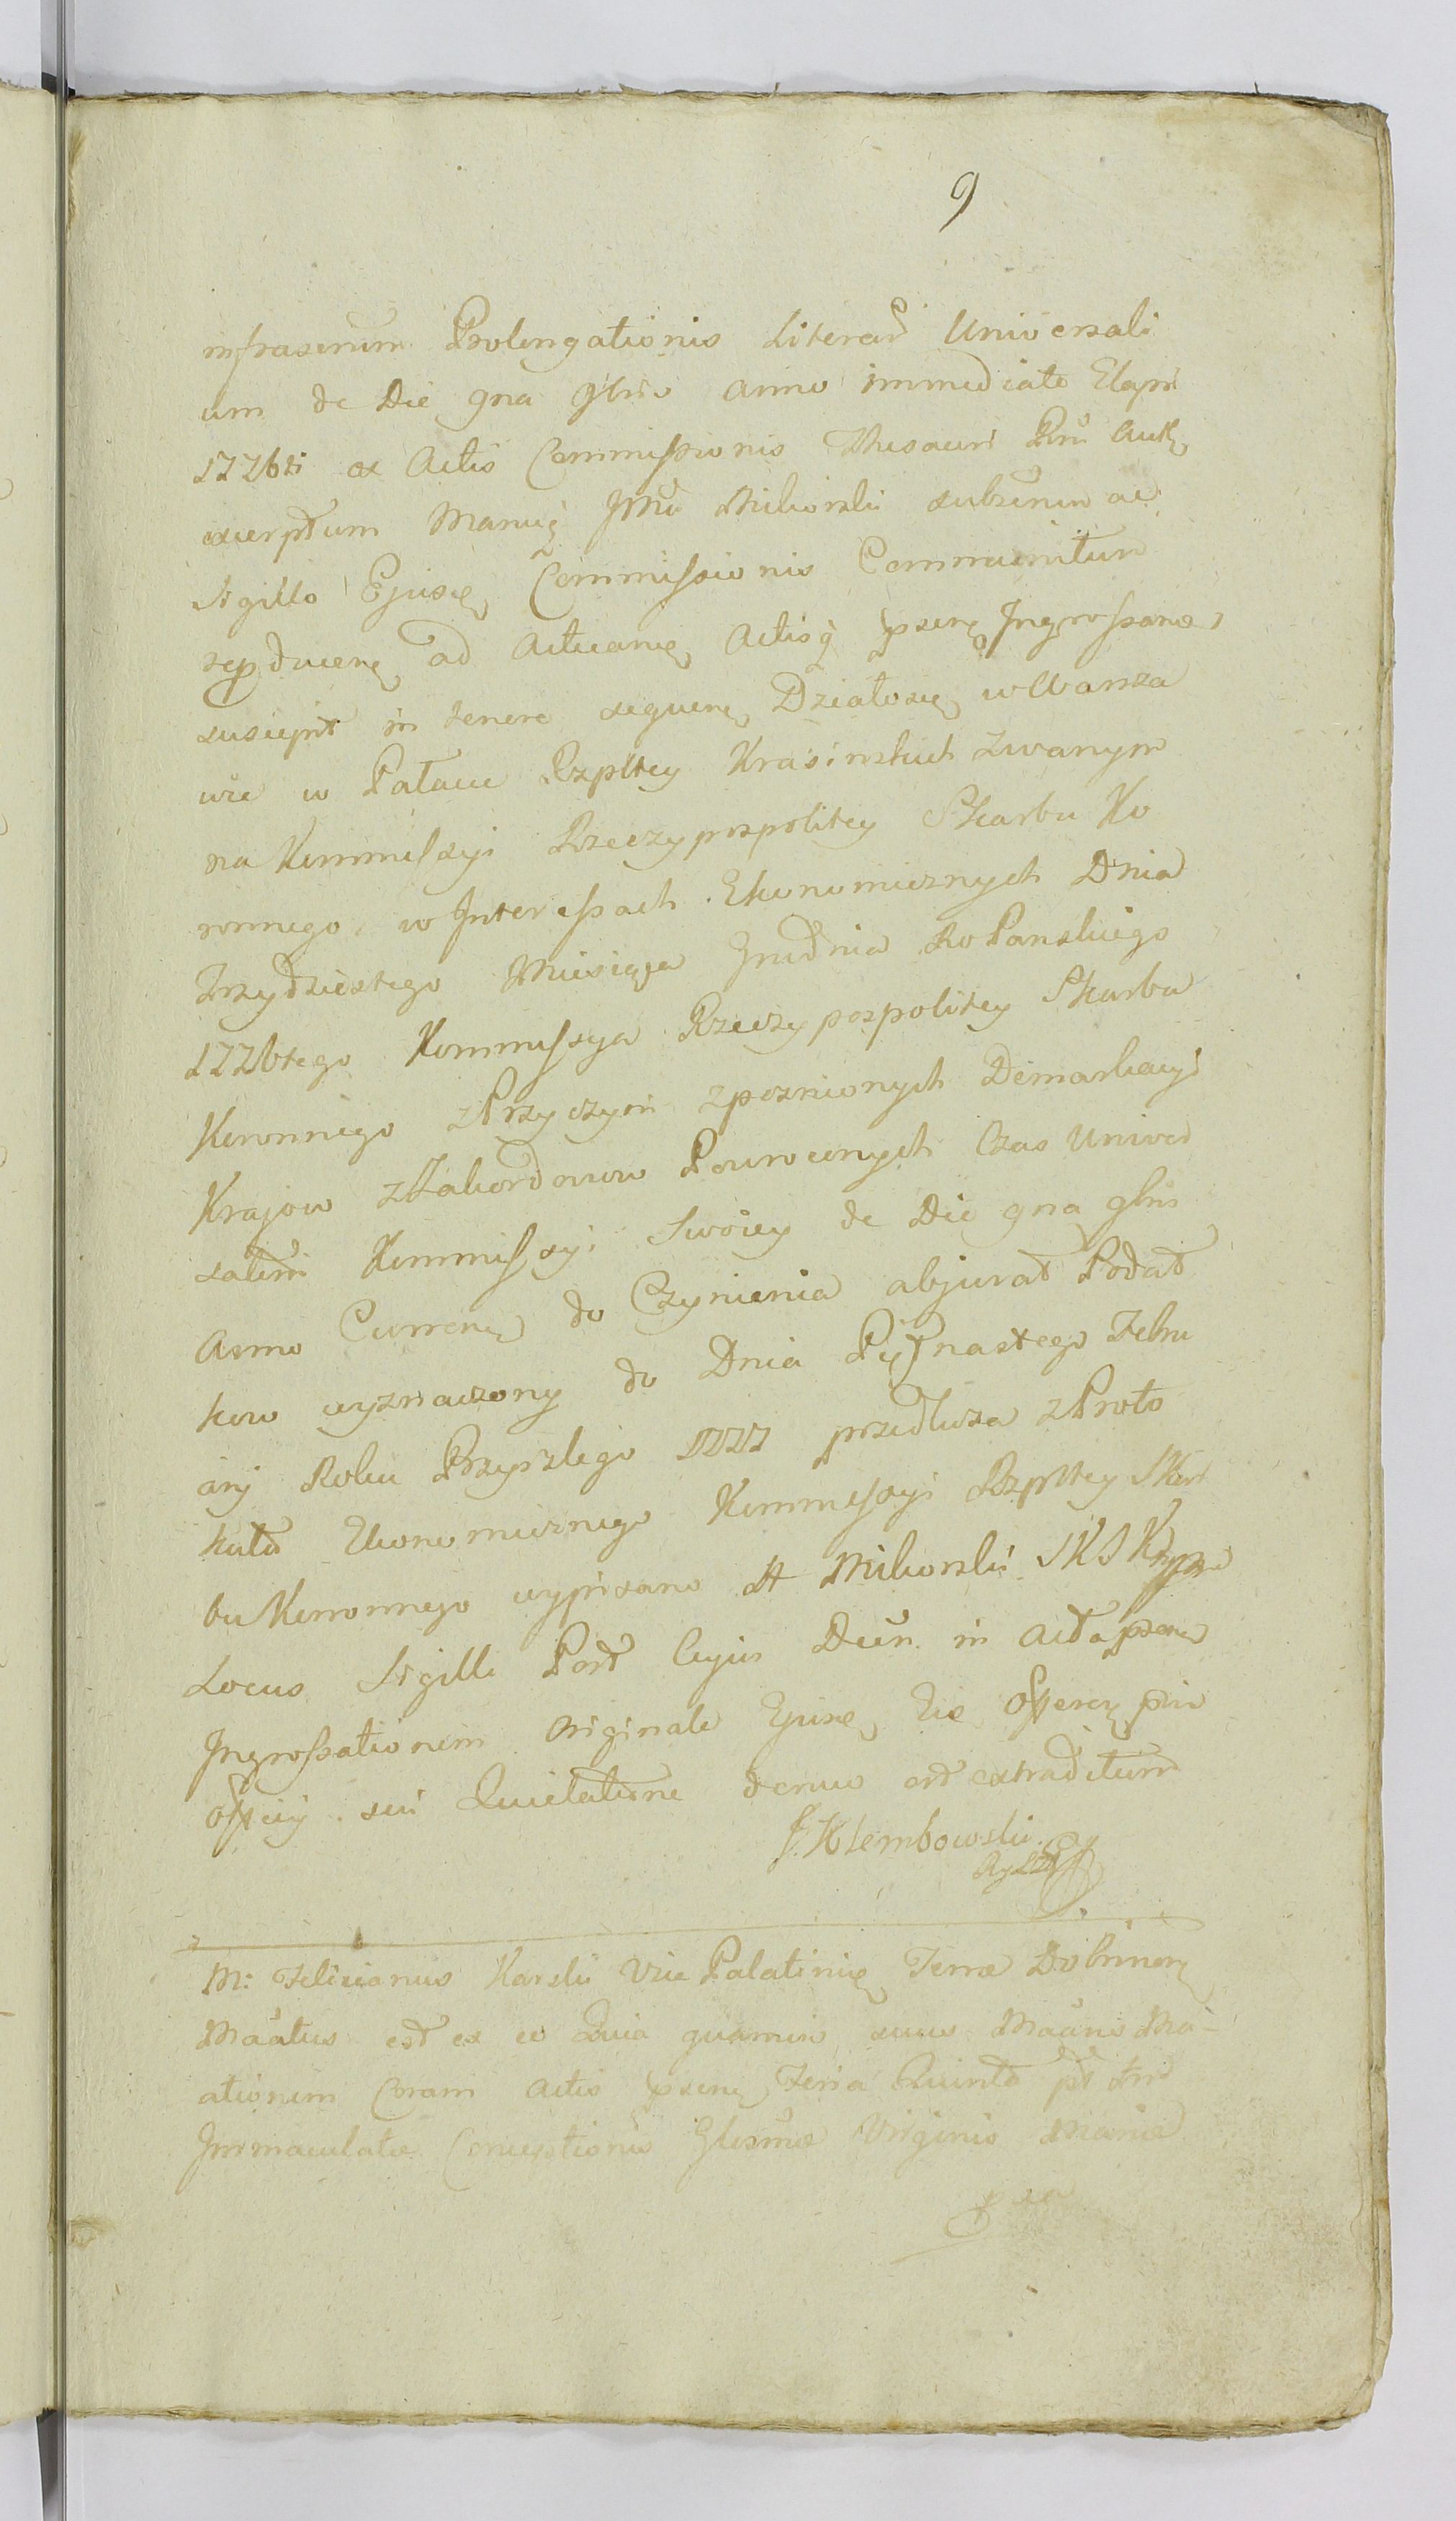 9
infrascrum Prolongationis Literar Universali
um de Die gna gbris anno immediate Elapsi
1776ti ex Actis Commissionis Thesauri Rni auth
excerptum Manuq JMci Mikorski subscrum ac
Sigillo Ejusd Commissionis Communitum
reproducens ad acticand Actisq pxsens Ingrossand
suscepit in tenore sequens Działo się w Warsza
wie w Pałacu Rzpltey Krasinskich zwanym
na Kommissyi Rzeczypospolitey Skarbu Ko
ronnego w Interessach Ekonomicznych Dnia
Trzydziestego Miesiąca Grudnia Ro Panskiego
1776tego Kommissya Rzeczypospolitey Skarbu
Koronnego z Przyczyn zpoznionych Demarkacyi
Krajow z Zakordonow Powroconych Czas Uniwer
sałem Kommissyi Swoiey de Die gna gbris
Anno Currend do Czynienia abjurat Podat
kow wyznaczony do Dnia Piętnastego Febru
arij Roku Przyszlego 1777 przedłuza z Proto
kułu Ekonomicznego Kommissyi Rzpltey Skar
bu Koronnego wypisano A Mikorski SKS K
Locus Sigilli Post Cujus Dcum in acta pxsens
Ingrossationem Originale Ejusd Eid Offerend pns
Officij sui Quietatione denuo est extraditum
J. Klembowski
M: Felicianus Karski Vice Palatinus Terræ Dobrinens
Mactus est ex eo Quia quamvis suus Macnis Ma-
ationem Coram Actis pxsens Feria Quinta pt stm
Immaculatæ Conceptionis Glosmæ Virginis Mariæ